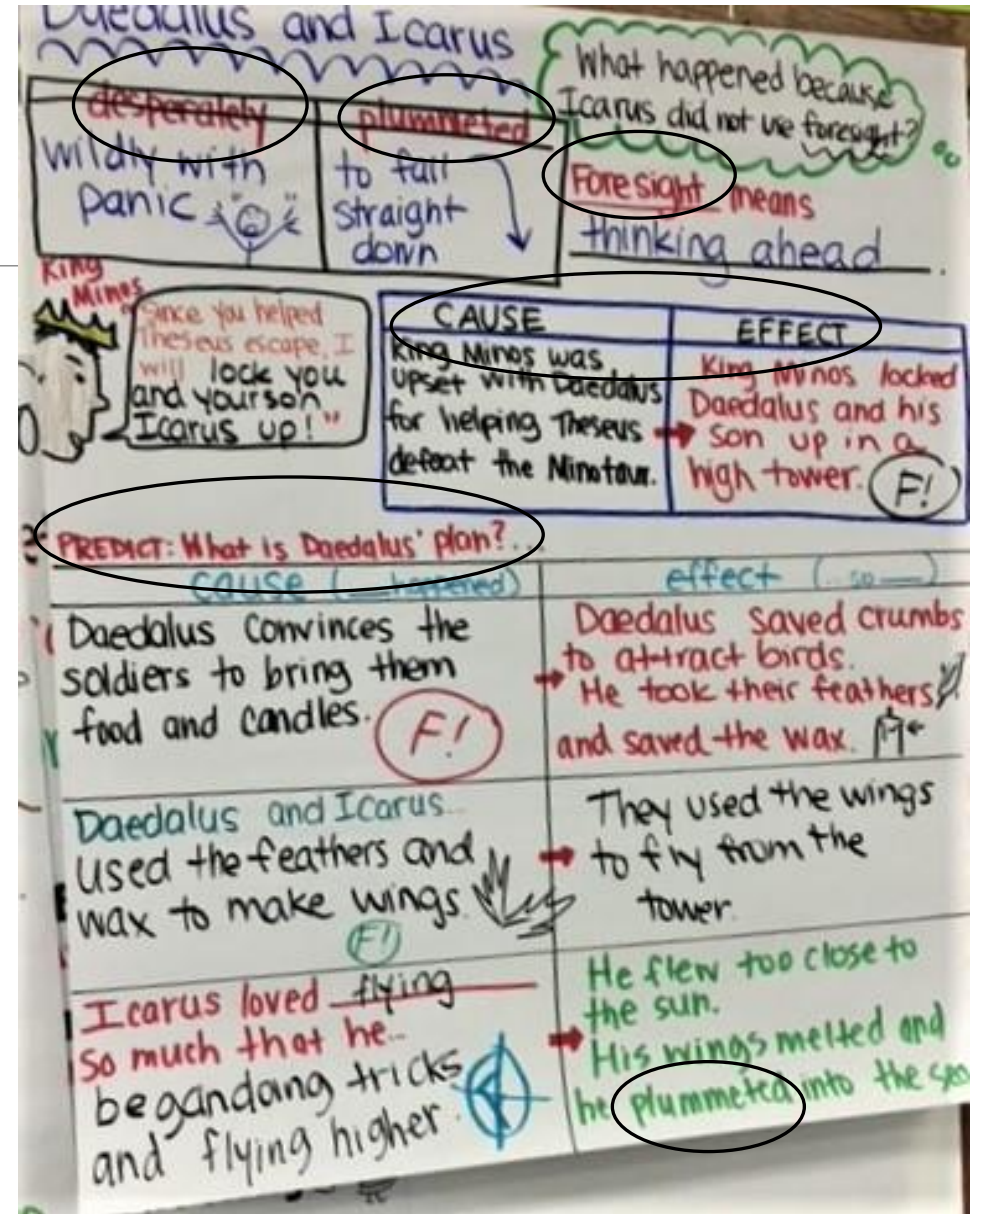 Daedalus and Icarus
What happened because
Icarus did not use foresight?
desperately
wildly with
panic
plummeted
to fall
straight
down
Foresight means
thinking ahead.
King
Minos
"Since you helped
Theseus escape, I
will lock you
and your son
Icarus up!"
CAUSE
EFFECT
King Minos was
upset with Daedalus
for helping Theseus
defeat the Minotaur.
King Minos locked
Daedalus and his
son up in a
high tower.
F!
PREDICT: What is Daedalus' plan?...
cause (___happened)
effect (...so ___)
Daedalus convinces the
soldiers to bring them
food and candles.
F!
Daedalus saved crumbs
to attract birds.
He took their feathers
and saved the wax.
Daedalus and Icarus...
used the feathers and
wax to make wings.
F!
They used the wings
to fly from the
tower.
Icarus loved flying
so much that he...
began doing tricks
and flying higher.
He flew too close to
the sun.
His wings melted and
he plummeted into the sea